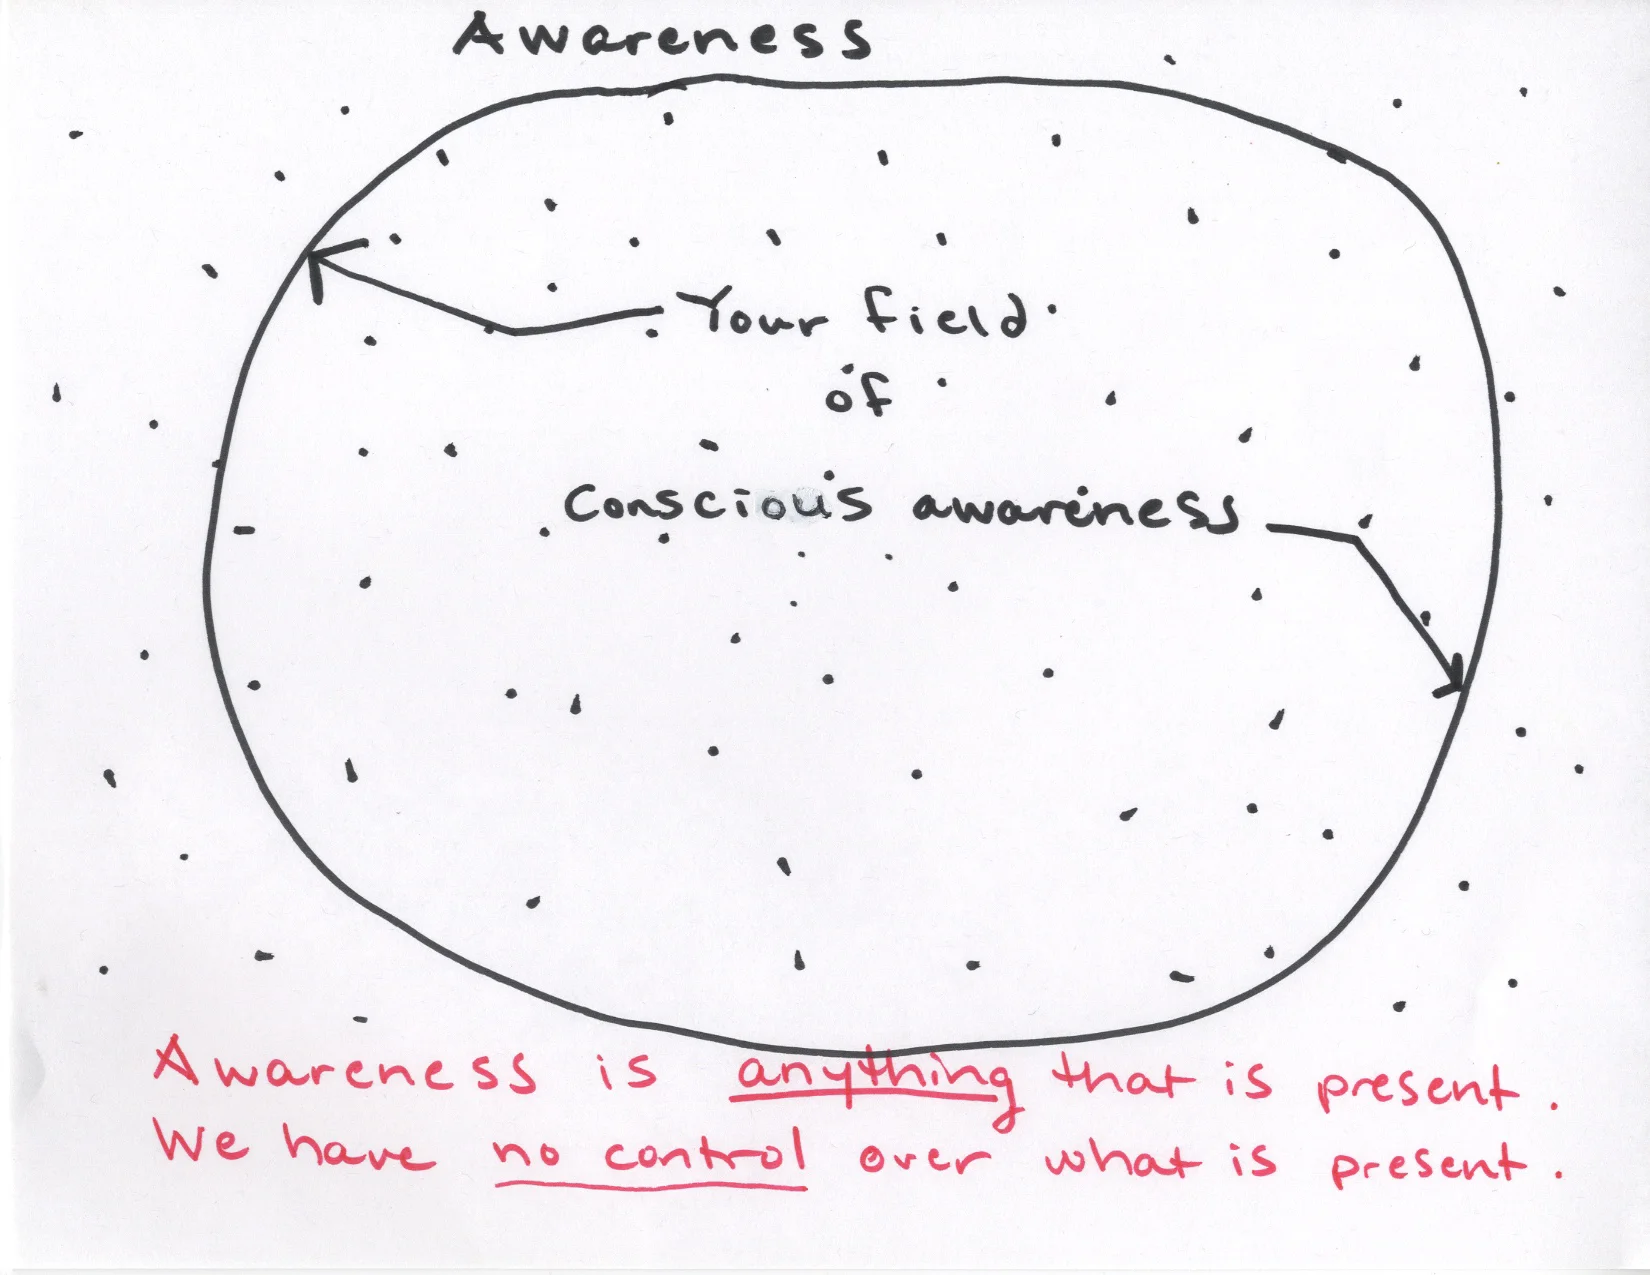 Awareness
Your field
of
Conscious awareness
Awareness is anything that is present.
We have no control over what is present.